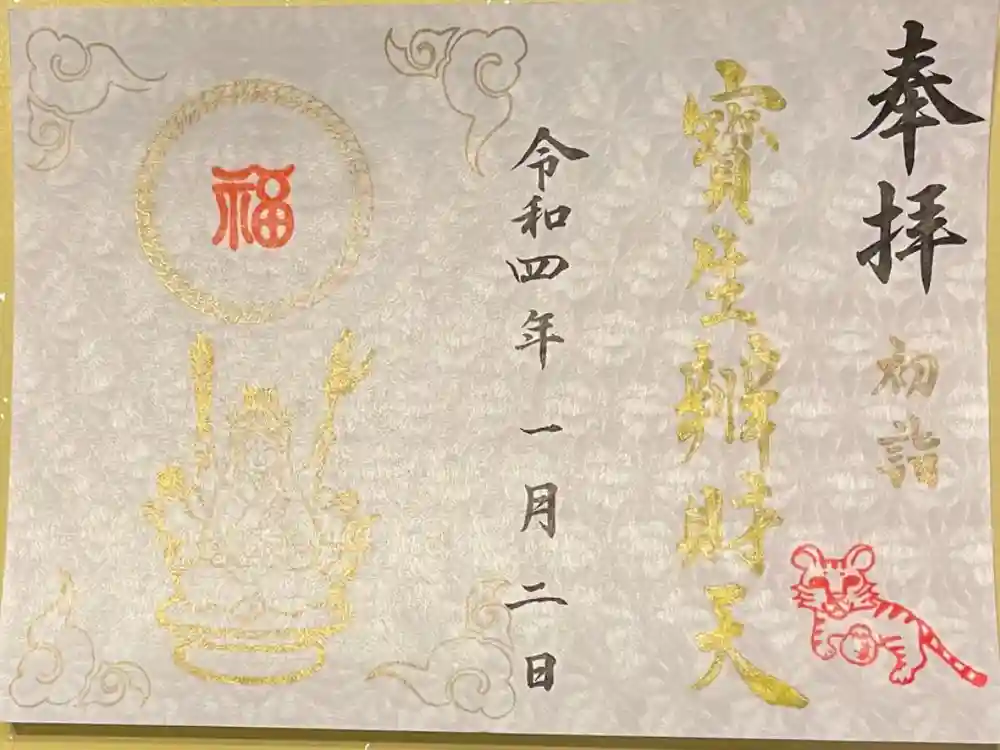 奉拝
初詣
寳生辨財天
令和四年一月二日
福